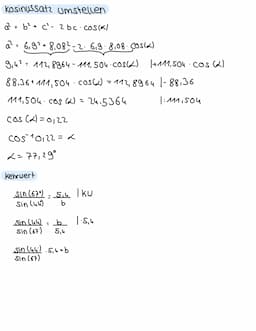 Kosinussatz umstellen
a² = b² + c² - 2bc · cos(α)
a² = 6,9² + 8,08² - 2 · 6,9 · 8,08 · cos(α)
9,4² = 112,8964 - 111,504 · cos(α) | + 111,504 · cos(α)
88,36 + 111,504 · cos(α) = 112,8964 | - 88,36
111,504 · cos(α) = 24,5364 | : 111,504
cos(α) = 0,22
cos⁻¹ 0,22 = α
α = 77,29°
Kehrwert
sin(67°) / sin(44) = 5,4 / b | KW
sin(44) / sin(67) = b / 5,4 | · 5,4
sin(44) / sin(67) · 5,4 = b